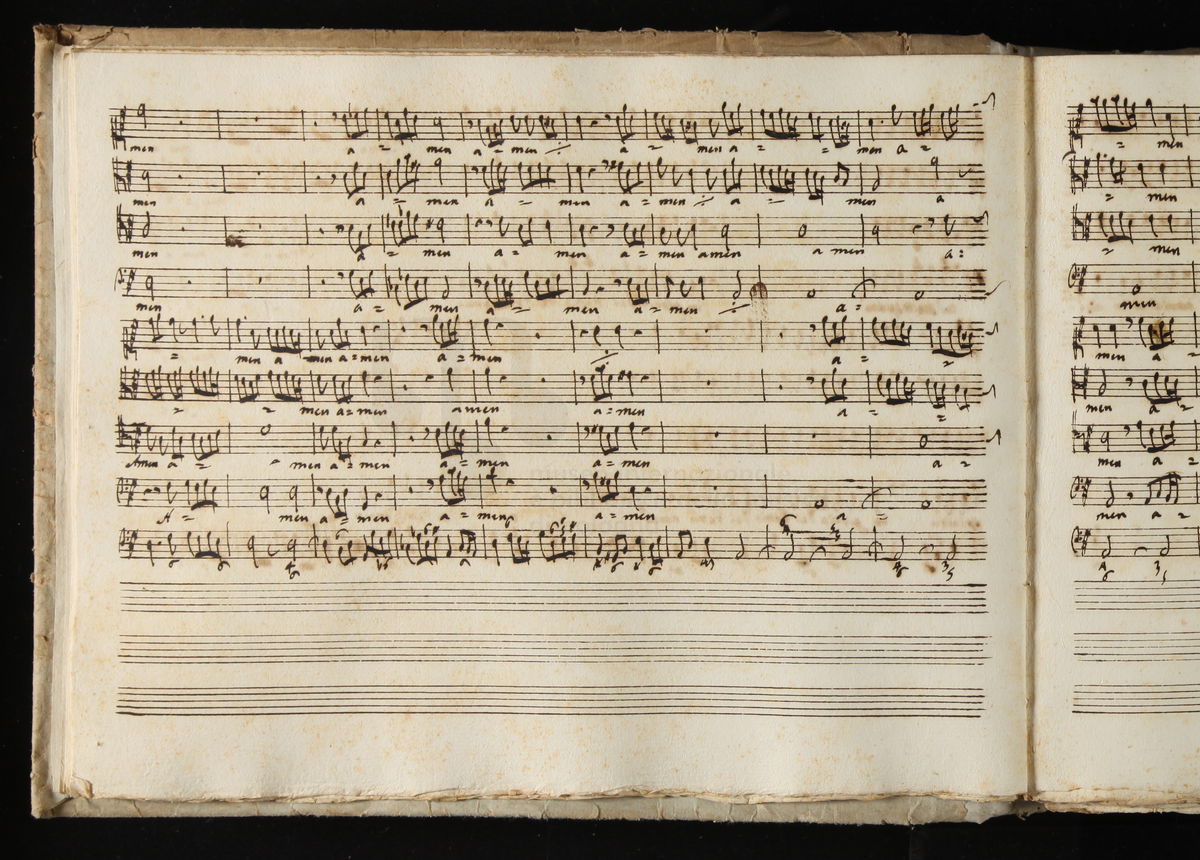 men a = men a = men ÷ a = men a = = men a =
= men
men a = men a = men a = men ÷ a = men a
= men
men a = men a = men a = men amen a men a =
= men
men a = men a = men a = men ÷ a =
men
= men a men a = men a = men ÷ a = =
men a =
= = men a = men amen a = men a = =
men a =
Amen a = men a = men a = men a = men a =
men a =
A = men a = men a = men a = men a =
men a =
museo internazionale